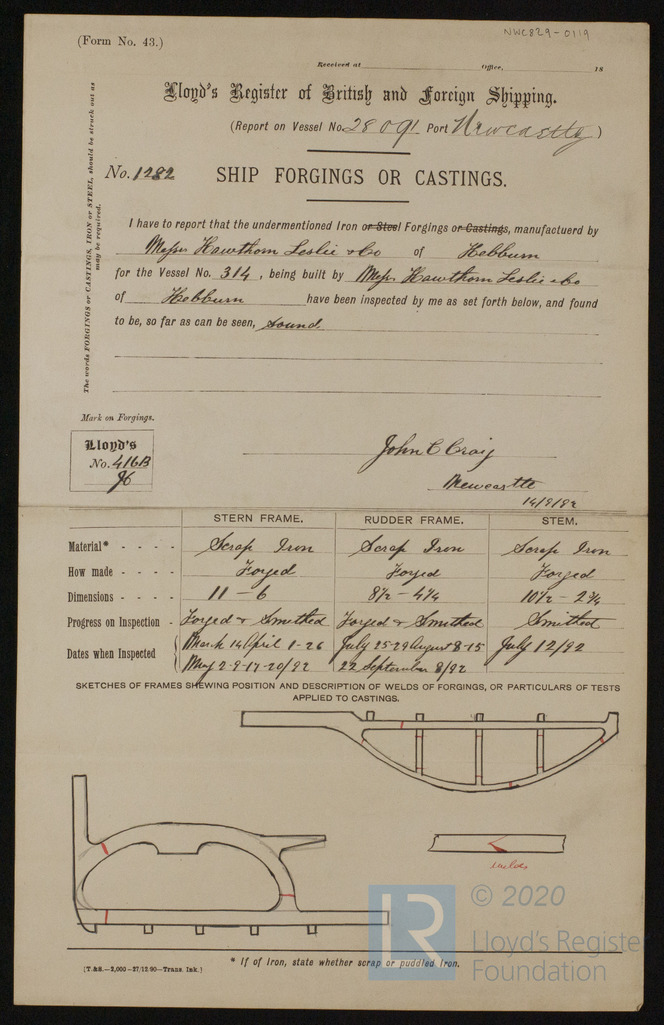 NWC829-0119
(Form No. 43.)
Received at Office, 18
Lloyd's Register of British and Foreign Shipping.
(Report on Vessel No. 28091 Port Newcastle)
No. 1282 SHIP FORGINGS OR CASTINGS.
The words FORGINGS or CASTINGS, IRON or STEEL, should be struck out as
may be required.
I have to report that the undermentioned Iron or Steel Forgings or Castings, manufactuerd by
Messrs Hawthorn Leslie & Co of Hebburn
for the Vessel No. 314, being built by Messrs Hawthorn Leslie & Co
of Hebburn have been inspected by me as set forth below, and found
to be, so far as can be seen, sound
Mark on Forgings.
Lloyd's
No. 416B
John C Craig
Newcastle
14/9/92
STERN FRAME. RUDDER FRAME. STEM.
Material* - - - - Scrap Iron Scrap Iron Scrap Iron
How made - - - - Forged Forged Forged
Dimensions - - - - 11 - 6 8½ - 4¼ 10½ - 2¾
Progress on Inspection - Forged & Smithed Forged & Smithed Smithed
Dates when Inspected { March 14 April 1-26 July 25-29 August 8-15 July 12/92
May 2-9-17-20/92 22 September 8/92
SKETCHES OF FRAMES SHEWING POSITION AND DESCRIPTION OF WELDS OF FORGINGS, OR PARTICULARS OF TESTS
APPLIED TO CASTINGS.
welds
LR
© 2020
Lloyd's Register
Foundation
* If of Iron, state whether scrap or puddled Iron.
[T.&S.—2,000-27/12/90-Trans. Ink.]